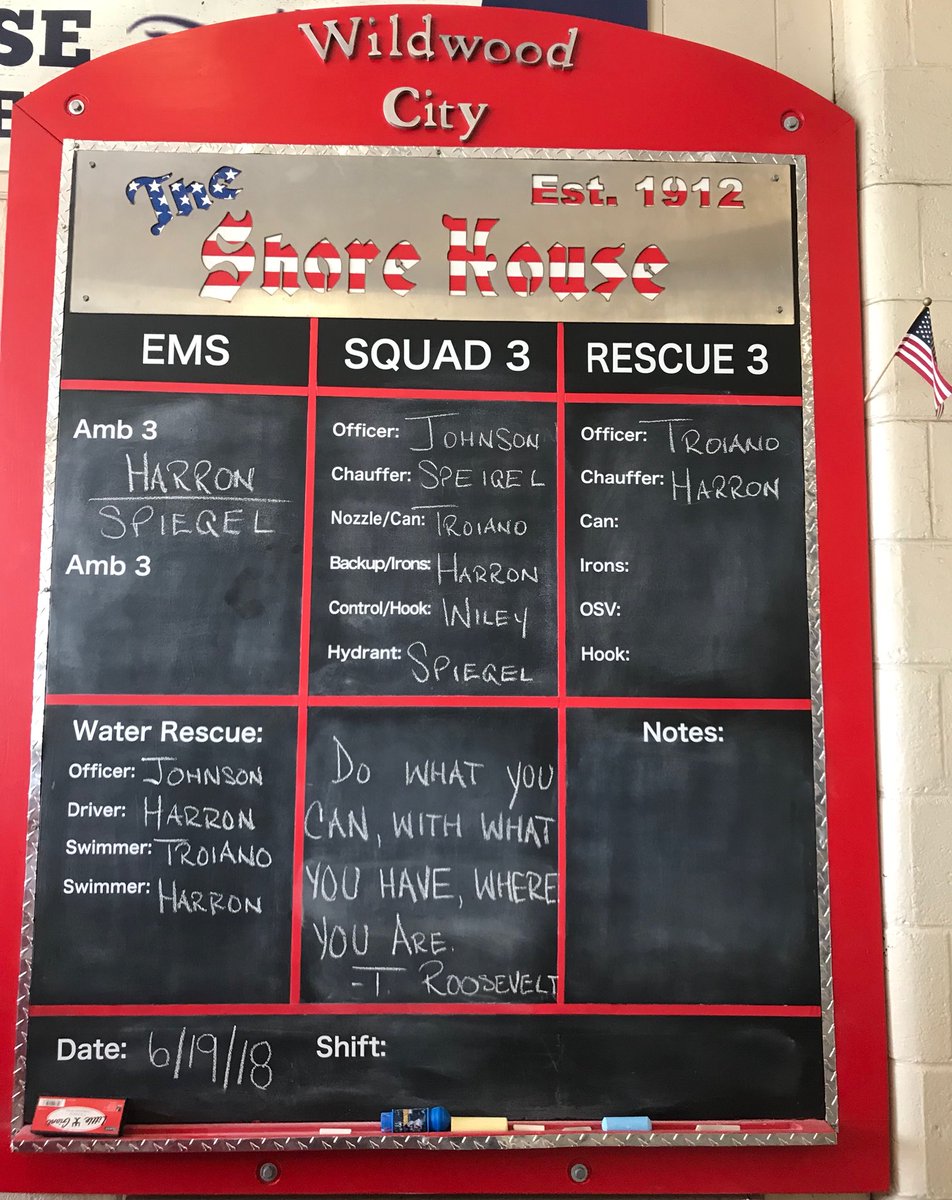 SE
Wildwood
City
The
Est. 1912
Shore House
EMS
Amb 3
HARRON
SPIEGEL
Amb 3
SQUAD 3
Officer: JOHNSON
Chauffer: SPEIGEL
Nozzle/Can: TROIANO
Backup/Irons: HARRON
Control/Hook: WILEY
Hydrant: SPIEGEL
RESCUE 3
Officer: TROIANO
Chauffer: HARRON
Can:
Irons:
OSV:
Hook:
Water Rescue:
Officer: JOHNSON
Driver: HARRON
Swimmer: TROIANO
Swimmer: HARRON
DO WHAT YOU
CAN, WITH WHAT
YOU HAVE, WHERE
YOU ARE.
-T. ROOSEVELT
Notes:
Date: 6/19/18 Shift:
Little Giant